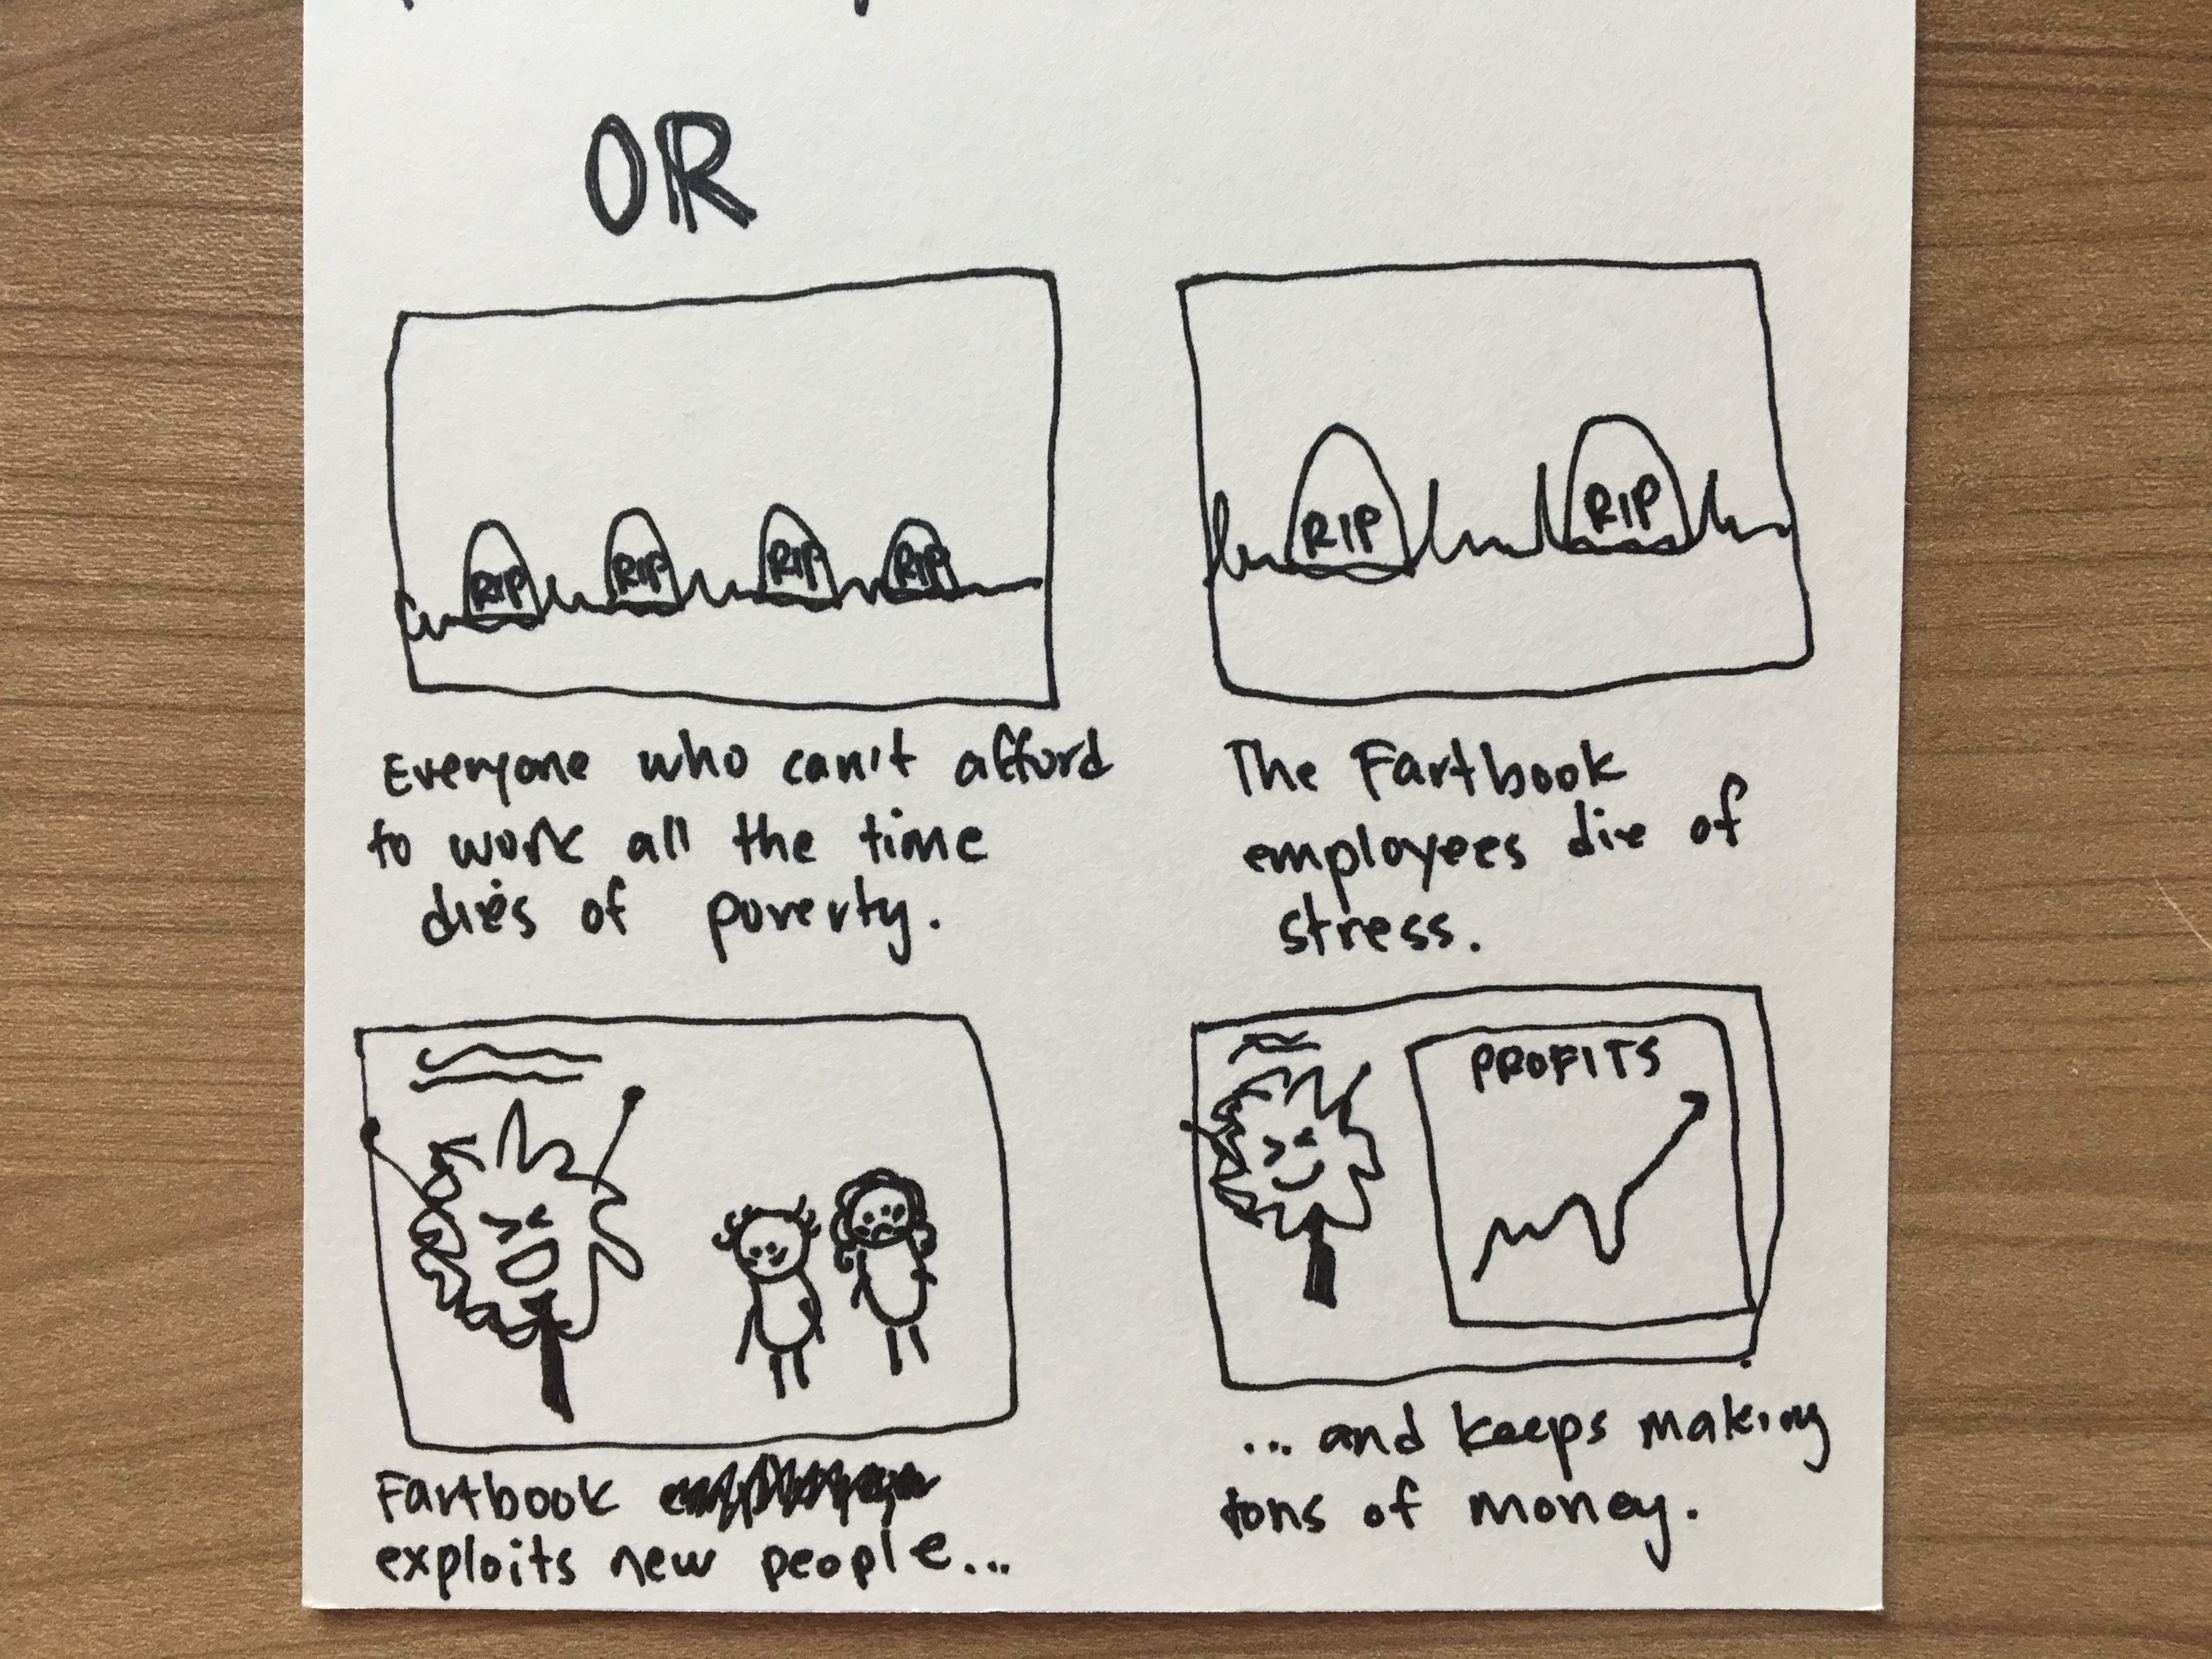 OR
RIP RIP RIP RIP
Everyone who can't afford
to work all the time
dies of poverty.
RIP RIP
The Fartbook
employees die of
stress.
Fartbook
exploits new people...
PROFITS
... and keeps making
tons of money.